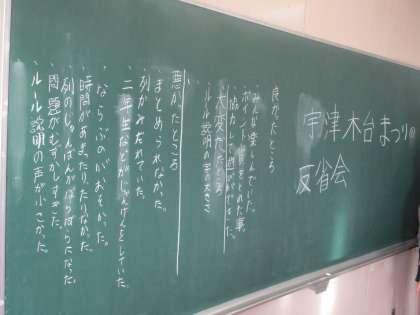 宇津木台まつりの
反省会
良かったところ
・みんな楽しんでいた。
・協力して遊ができた。
大変だたところ
・ルール説明の声の大きさ
悪かたところ
・まとめられなかった。
・列がみだれていた。
・二年生などがじゃんけんをしていた。
・ならぶのがおそかった。
・時間があまったりたりなかった。
・列のじゅんばんがばらばらだった。
・問題がむずかしすぎた。
・ルール説明の声が小さかった。